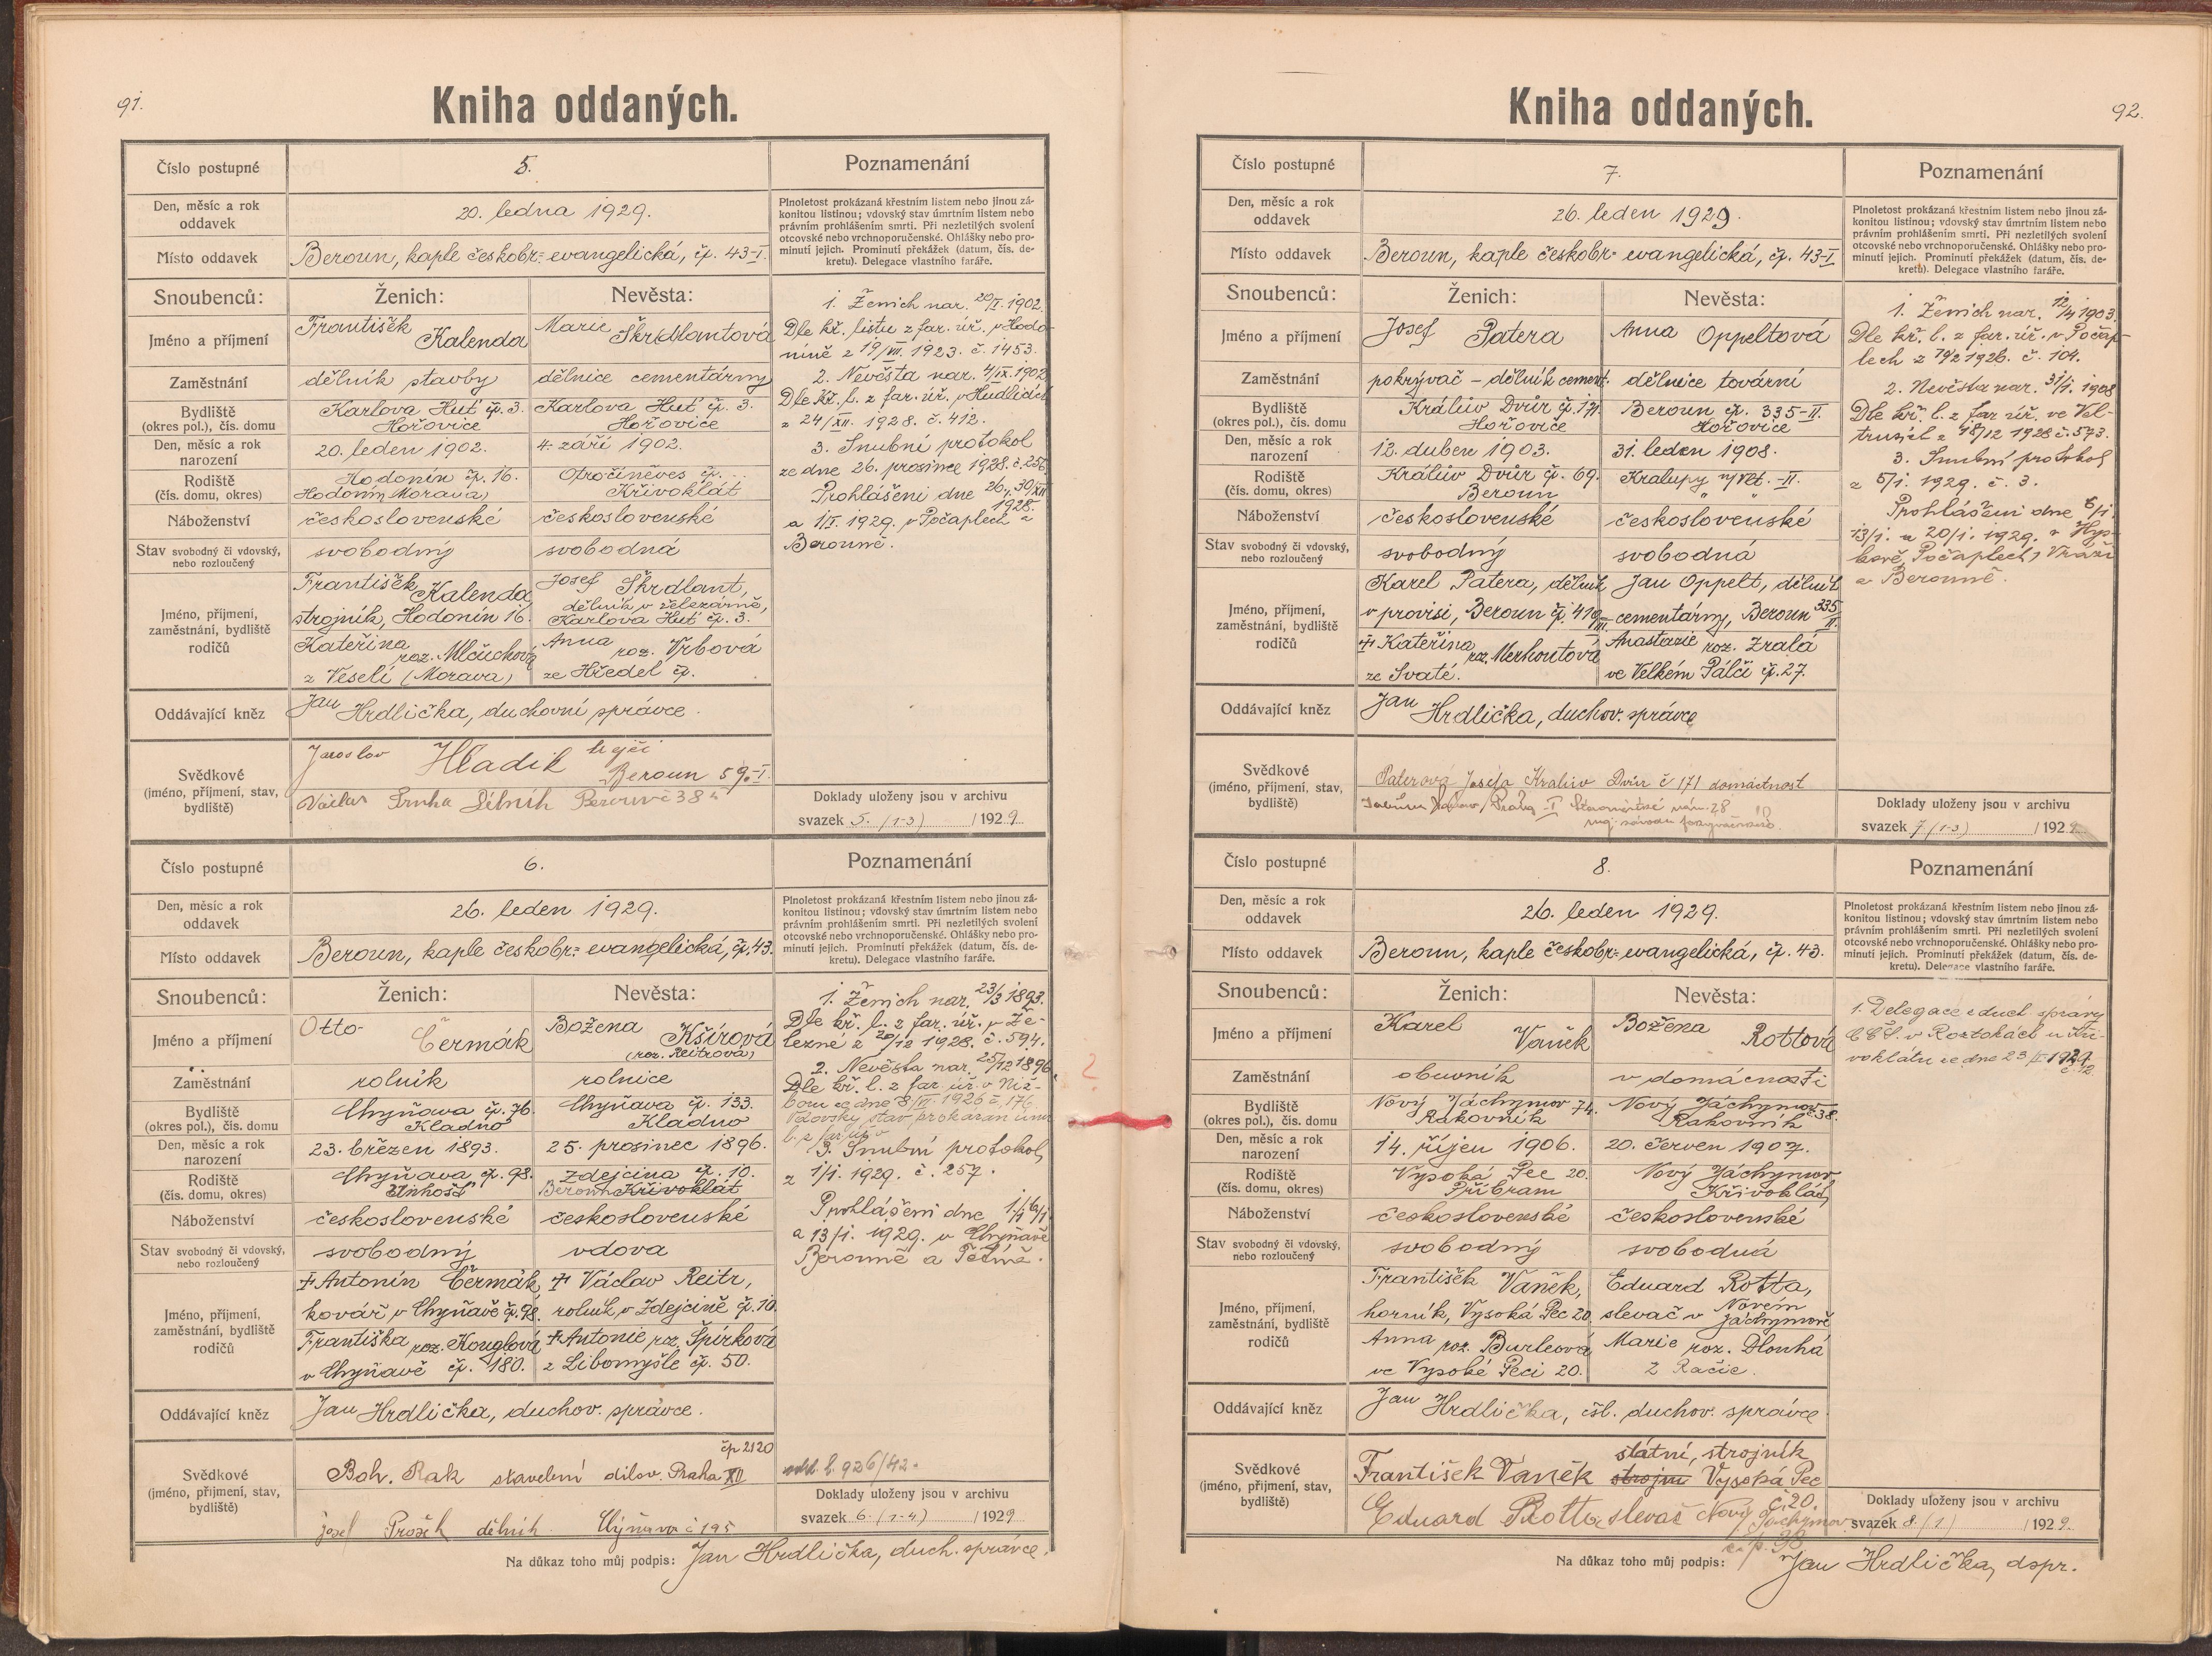 91.
Kniha oddaných.
Číslo postupné
5.
Poznamenání
Den, měsíc a rok
oddavek
20. ledna 1929.
Plnoletost prokázaná křestním listem nebo jinou zá-
konitou listinou; vdovský stav úmrtním listem nebo
právním prohlášením smrti. Při nezletilých svolení
otcovské nebo vrchnoporučenské. Ohlášky nebo pro-
minutí jejich. Prominutí překážek (datum, čís. de-
kretu). Delegace vlastního faráře.
Místo oddavek
Beroun, kaple českobr= evangelická, čp. 43-I.
Snoubenců:
Ženich:
Nevěsta:
Jméno a příjmení
František Kalenda
Marie Škrdlantová
Zaměstnání
dělník stavby
dělnice cementárny
Bydliště
(okres pol.), čís. domu
Karlova Huť čp. 3.
Hořovice
Karlova Huť čp. 3.
Hořovice
Den, měsíc a rok
narození
20. leden 1902.
4. září 1902.
Rodiště
(čís. domu, okres)
Hodonín čp. 16.
Hodonín, Morava)
Otročiněves čp. ..
Křivoklát
Náboženství
československé
československé
Stav svobodný či vdovský,
nebo rozloučený
svobodný
svobodná
Jméno, příjmení,
zaměstnání, bydliště
rodičů
František Kalenda
strojník, Hodonín 16.
Kateřina roz. Mlčuchová
z Veselí (Morava)
Josef Škrdlant,
dělník v železárně,
Karlova Huť č. 3.
Anna roz. Vrbová
ze Hředel čp.
1. Ženich nar. 20/I. 1902.
Dle kř. listu z far. úř. v Hodo-
níně z 19/VII. 1923. č. 1453.
2. Nevěsta nar. 4/IX. 1902
Dle kř. l. z far. úř. v Hudlicích
z 24/XII. 1928. č. 412.
3. Snubní protokol
ze dne 26. prosince 1928. č. 256.
Prohlášení dne 26., 30/XII
1928.
a 1/I. 1929. v Počaplech a
Berouně.
Oddávající kněz
Jan Hrdlička, duchovní správce.
Svědkové
(jméno, příjmení, stav,
bydliště)
Jaroslav Hladik
Beroun 590-I.
Václav Dělník
Doklady uloženy jsou v archivu
svazek 5. (1-3) / 1929.
Číslo postupné
6.
Poznamenání
Den, měsíc a rok
oddavek
26. leden 1929.
Plnoletost prokázaná křestním listem nebo jinou zá-
konitou listinou; vdovský stav úmrtním listem nebo
právním prohlášením smrti. Při nezletilých svolení
otcovské nebo vrchnoporučenské. Ohlášky nebo pro-
minutí jejich. Prominutí překážek (datum, čís. de-
kretu). Delegace vlastního faráře.
Místo oddavek
Beroun, kaple českobr= evangelická, čp. 43.
Snoubenců:
Ženich:
Nevěsta:
Jméno a příjmení
Otto Čermák
Božena Kšírová
(roz. Reitrová)
Zaměstnání
rolník
rolnice
Bydliště
(okres pol.), čís. domu
Chyňava čp. 76.
Kladno
Chyňava čp. 133.
Kladno
Den, měsíc a rok
narození
23. březen 1893.
25. prosinec 1896.
Rodiště
(čís. domu, okres)
Chyňava čp. 98.
Unhošť
Zdejcina čp. 10.
Beroun Křivoklát
Náboženství
československé
československé
Stav svobodný či vdovský,
nebo rozloučený
svobodný
vdova
Jméno, příjmení,
zaměstnání, bydliště
rodičů
† Antonín Čermák,
kovář v Chyňavě čp. 98.
Františka roz. Kouglová
v Chyňavě čp. 180.
† Václav Reitr,
rolník v Zdejcině čp. 10.
† Antonie roz. Špírková
z Libomyšle čp. 50.
1. Ženich nar. 23/3 1893.
Dle kř. l. z far. úř. v Že-
lezné z 20/12 1928. č. 594.
2. Nevěsta nar. 25/12 1896
Dle kř. l. z far. úř. v Niž-
boru ze dne 8/VI. 1926 č. 176
Vdovský stav prokázán úmr.
l. z far. úř. v
3. Snubní protokol
z 1/1. 1929. č. 257.
Prohlášení dne 1/1 6/1.
a 13/1. 1929. v Chyňavě
Berouně a
?
Oddávající kněz
Jan Hrdlička, duchov. správce.
Svědkové
(jméno, příjmení, stav,
bydliště)
čp 2120
Boh. Rak stavební Praha XII
Josef Prošek dělník Chyňava č 195
926/42.
Doklady uloženy jsou v archivu
svazek 6. (1-4) / 1929
Na důkaz toho můj podpis: Jan Hrdlička, duch. správce.
92.
Kniha oddaných.
Číslo postupné
7.
Poznamenání
Den, měsíc a rok
oddavek
26. leden 1929.
Plnoletost prokázaná křestním listem nebo jinou zá-
konitou listinou; vdovský stav úmrtním listem nebo
právním prohlášením smrti. Při nezletilých svolení
otcovské nebo vrchnoporučenské. Ohlášky nebo pro-
minutí jejich. Prominutí překážek (datum, čís. de-
kretu). Delegace vlastního faráře.
Místo oddavek
Beroun, kaple českobr= evangelická, čp. 43-I
Snoubenců:
Ženich:
Nevěsta:
Jméno a příjmení
Josef Patera
Anna Oppeltová
Zaměstnání
pokrývač - dělník cement.
dělnice tovární
Bydliště
(okres pol.), čís. domu
Králův Dvůr čp. 171.
Hořovice
Beroun čp. 335-II.
Hořovice
Den, měsíc a rok
narození
12. duben 1903.
31. leden 1908.
Rodiště
(čís. domu, okres)
Králův Dvůr čp. 69.
Beroun
Kralupy n/Vlt. -II.
" "
Náboženství
československé
československé
Stav svobodný či vdovský,
nebo rozloučený
svobodný
svobodná
Jméno, příjmení,
zaměstnání, bydliště
rodičů
Karel Patera, dělník
v provisi, Beroun čp. 410/III.
† Kateřina roz. Merhoutová
ze Svaté.
Jan Oppelt, dělník
cementárny, Beroun 335/II.
Anastazie roz. Zralá
ve Velkém Pálči čp. 27.
1. Ženich nar. 12/4 1903.
Dle kř. l. z far. úř. v Počap-
lech z 19/2 1926. č. 104.
2. Nevěsta nar. 31/1. 1908
Dle kř. l. z far. úř. ve Vel-
trusích z 18/12 1928 č. 573.
3. Snubní protokol
z 5/1. 1929. č. 3.
Prohlášení dne 6/1.
13/1. a 20/1. 1929. v Hýs-
kově, Počaplech, Vráži
a Berouně.
Oddávající kněz
Jan Hrdlička, duchov. správce
Svědkové
(jméno, příjmení, stav,
bydliště)
Paterová Josefa Králův Dvůr č 171 domácnost
Praha -I Staroměstské nám. 28
Doklady uloženy jsou v archivu
svazek 7 (1-3) / 1929.
Číslo postupné
8.
Poznamenání
Den, měsíc a rok
oddavek
26. leden 1929.
Plnoletost prokázaná křestním listem nebo jinou zá-
konitou listinou; vdovský stav úmrtním listem nebo
právním prohlášením smrti. Při nezletilých svolení
otcovské nebo vrchnoporučenské. Ohlášky nebo pro-
minutí jejich. Prominutí překážek (datum, čís. de-
kretu). Delegace vlastního faráře.
Místo oddavek
Beroun, kaple českobr= evangelická, čp. 43.
Snoubenců:
Ženich:
Nevěsta:
Jméno a příjmení
Karel Vaněk
Božena Rottová
Zaměstnání
obuvník
v domácnosti
Bydliště
(okres pol.), čís. domu
Nový Jáchymov 74.
Rakovník
Nový Jáchymov č. 38.
Rakovník
Den, měsíc a rok
narození
14. říjen 1906.
20. červen 1907.
Rodiště
(čís. domu, okres)
Vysoká Pec 20.
Příbram
Nový Jáchymov,
Křivoklát,
Náboženství
československé
československé
Stav svobodný či vdovský,
nebo rozloučený
svobodný
svobodná
Jméno, příjmení,
zaměstnání, bydliště
rodičů
František Vaněk,
horník, Vysoká Pec 20
Anna roz. Burleová
ve Vysoké Peci 20.
Eduard Rotta,
slevač v Novém
Jáchymově
Marie roz. Dlouhá
z Račic.
1. Delegace z duch. správy
CČS. v Roztokách u Kři-
voklátu ze dne 23/I. 1929.
č. 12
Oddávající kněz
Jan Hrdlička, čsl. duchov. správce.
Svědkové
(jméno, příjmení, stav,
bydliště)
státní, strojník
František Vaněk strojn Vysoká Pec
č. 20.
Eduard Rotta slevač Nový Jáchymov
čp. 38
Doklady uloženy jsou v archivu
svazek 8 (1) / 1929.
Na důkaz toho můj podpis: Jan Hrdlička, dspr.